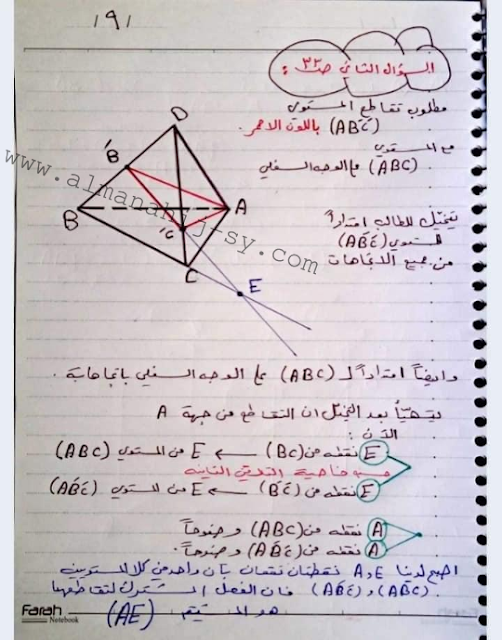 191
السؤال الثاني ص٣٢ :
مطلوب تقاطع المستوي
(AB́Ć) باللون الاحمر.
مع المستوي
(ABC) مع الوجه السفلي
يتخيل الطالب امتداداً
للمستوي (AB́Ć)
من جميع الاتجاهات
D
B́
B
A
Ć
C
E
www.almanahj-sy.com
وايضاً امتداداً لـ (ABC) على الوجه السفلي باتجاهاته .
يتهيأ بعد التخيل ان التقاطع من جهة A
الآن :
E نقطة من (BC) ← E من المستوي (ABC)
حسب خاصية التلاقي الثانية
E نقطة من (B́Ć) ← E من المستوي (AB́Ć)
A نقطة من (ABC) وضوحاً
A نقطة من (AB́Ć) وضوحاً.
اصبح لدينا A و E نقطتان تقعان بآن واحد من كلا المستويين
(ABC) و (AB́Ć) فان الفصل المشترك لتقاطعهما
هو المستقيم (AE)
Farah
Notebook